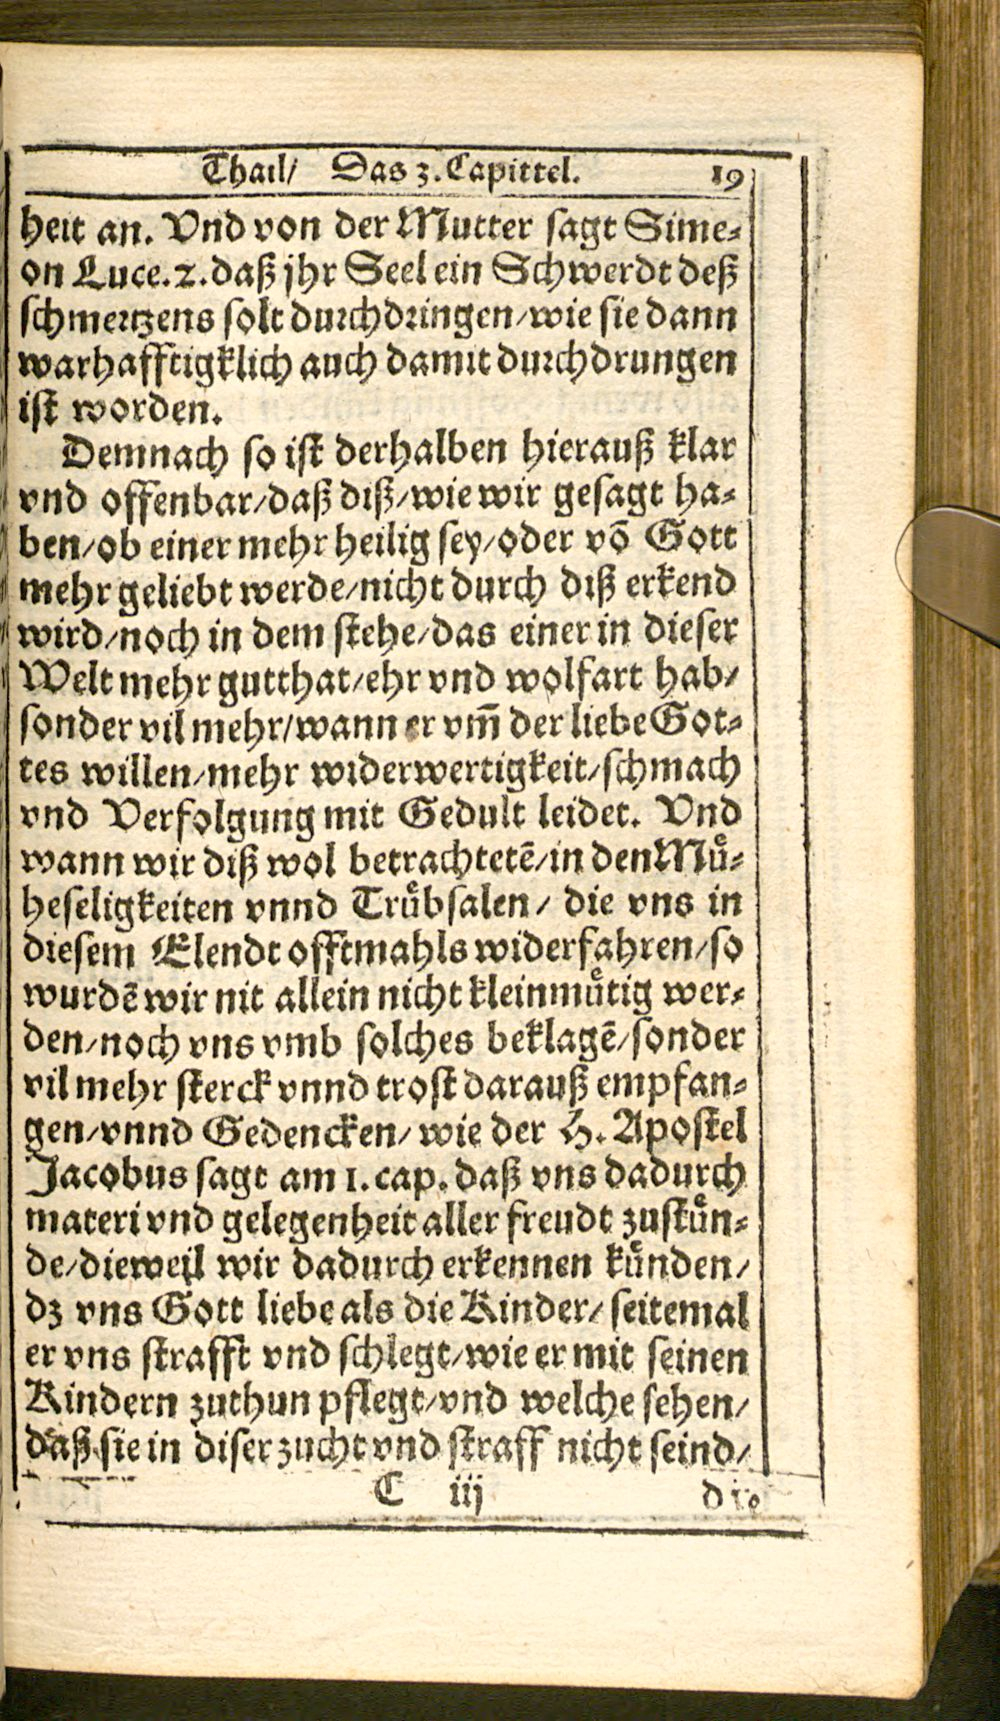 Thail/ Das 3. Capittel. 19
heit an. Vnd von der Mutter sagt Sime-
on Luce. 2. daß jhr Seel ein Schwerdt deß
schmertzens solt durchdringen/wie sie dann
warhafftigklich auch damit durchdrungen
ist worden.
Demnach so ist derhalben hierauß klar
vnd offenbar/daß diß/wie wir gesagt ha-
ben/ob einer mehr heilig sey/oder võ Gott
mehr geliebt werde/nicht durch diß erkend
wird/noch in dem stehe/das einer in dieser
Welt mehr gutthat/ehr vnd wolfart hab/
sonder vil mehr/wann er vm̃ der liebe Got-
tes willen/mehr widerwertigkeit/schmach
vnd Verfolgung mit Gedult leidet. Vnd
wann wir diß wol betrachtetẽ/in den Muͤ-
heseligkeiten vnnd Truͤbsalen/ die vns in
diesem Elendt offtmahls widerfahren/so
wurdẽ wir nit allein nicht kleinmuͤtig wer-
den/noch vns vmb solches beklagẽ/sonder
vil mehr sterck vnnd trost darauß empfan-
gen/vnnd Gedencken/ wie der H. Apostel
Jacobus sagt am 1. cap. daß vns dadurch
materi vnd gelegenheit aller freudt zustuͤn-
de/dieweil wir dadurch erkennen kuͤnden/
dz vns Gott liebe als die Kinder/ seitemal
er vns strafft vnd schlegt/wie er mit seinen
Kindern zuthun pflegt/vnd welche sehen/
daß sie in diser zucht vnd straff nicht seind/
C iij die